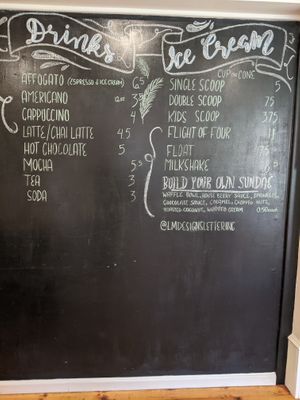 Drinks
AFFOGATO (ESPRESSO & ICE CREAM) 6.5
AMERICANO 12oz 3
CAPPUCCINO 4
LATTE/CHAI LATTE 4.5
HOT CHOCOLATE 5
MOCHA 5
TEA 3
SODA 3
Ice Cream
CUP OR CONE
SINGLE SCOOP 5
DOUBLE SCOOP 7.5
KIDS SCOOP 3.75
FLIGHT OF FOUR 11
FLOAT
MILKSHAKE
BUILD YOUR OWN SUNDAE
WAFFLE BOWL, HOUSE BERRY SAUCE, SPRINKLES,
CHOCOLATE SAUCE, CARAMEL, CHOPPED NUTS,
TOASTED COCONUT, WHIPPED CREAM 0.50 each
@LMDESIGNSLETTERING